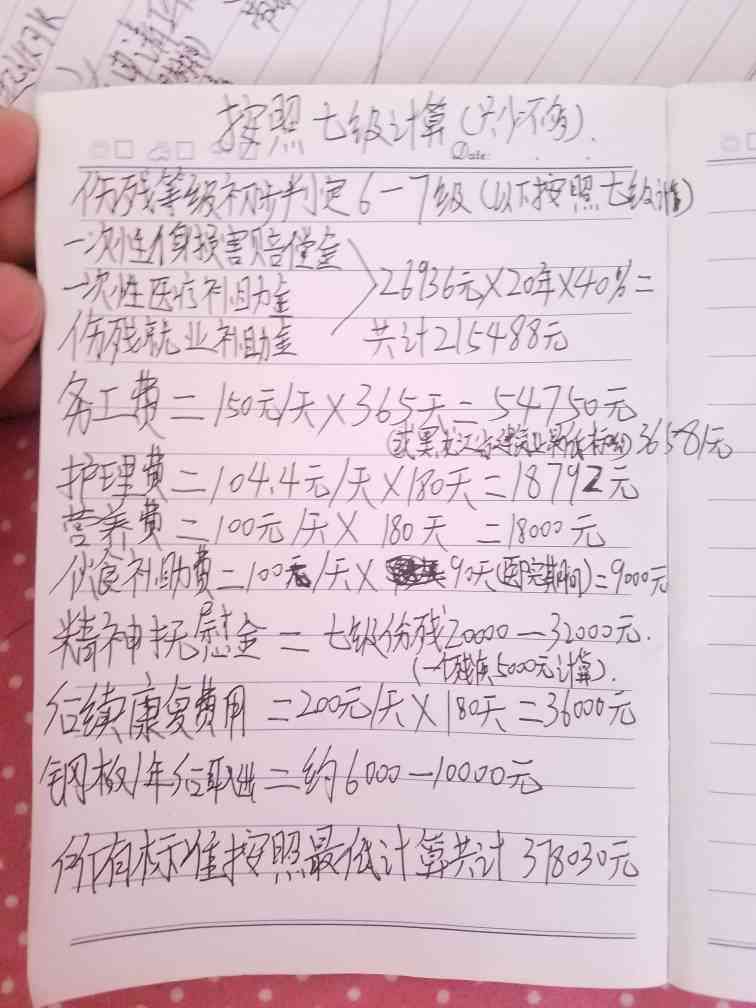 申请
按照七级计算(只少不多).
Date:
伤残等级初步判定6—7级(以下按照七级计算)
一次性伤残损害赔偿金
一次性医疗补助金
26936元×20年×40%=
伤残就业补助金
共计215488元
务工费=150元/天×365天=54750元
(或黑龙江省建筑业最低标准)36581元
护理费=104.4元/天×180天=18792元
营养费=100元/天×180天=18000元
伙食补助费=100元/天×90天(医院期间)=9000元
精神抚慰金=七级伤残20000—32000元.
(一个残疾5000元计算).
后续康复费用=200元/天×180天=36000元
钢板1年后取出=约6000—10000元
所有标准按照最低计算共计378030元